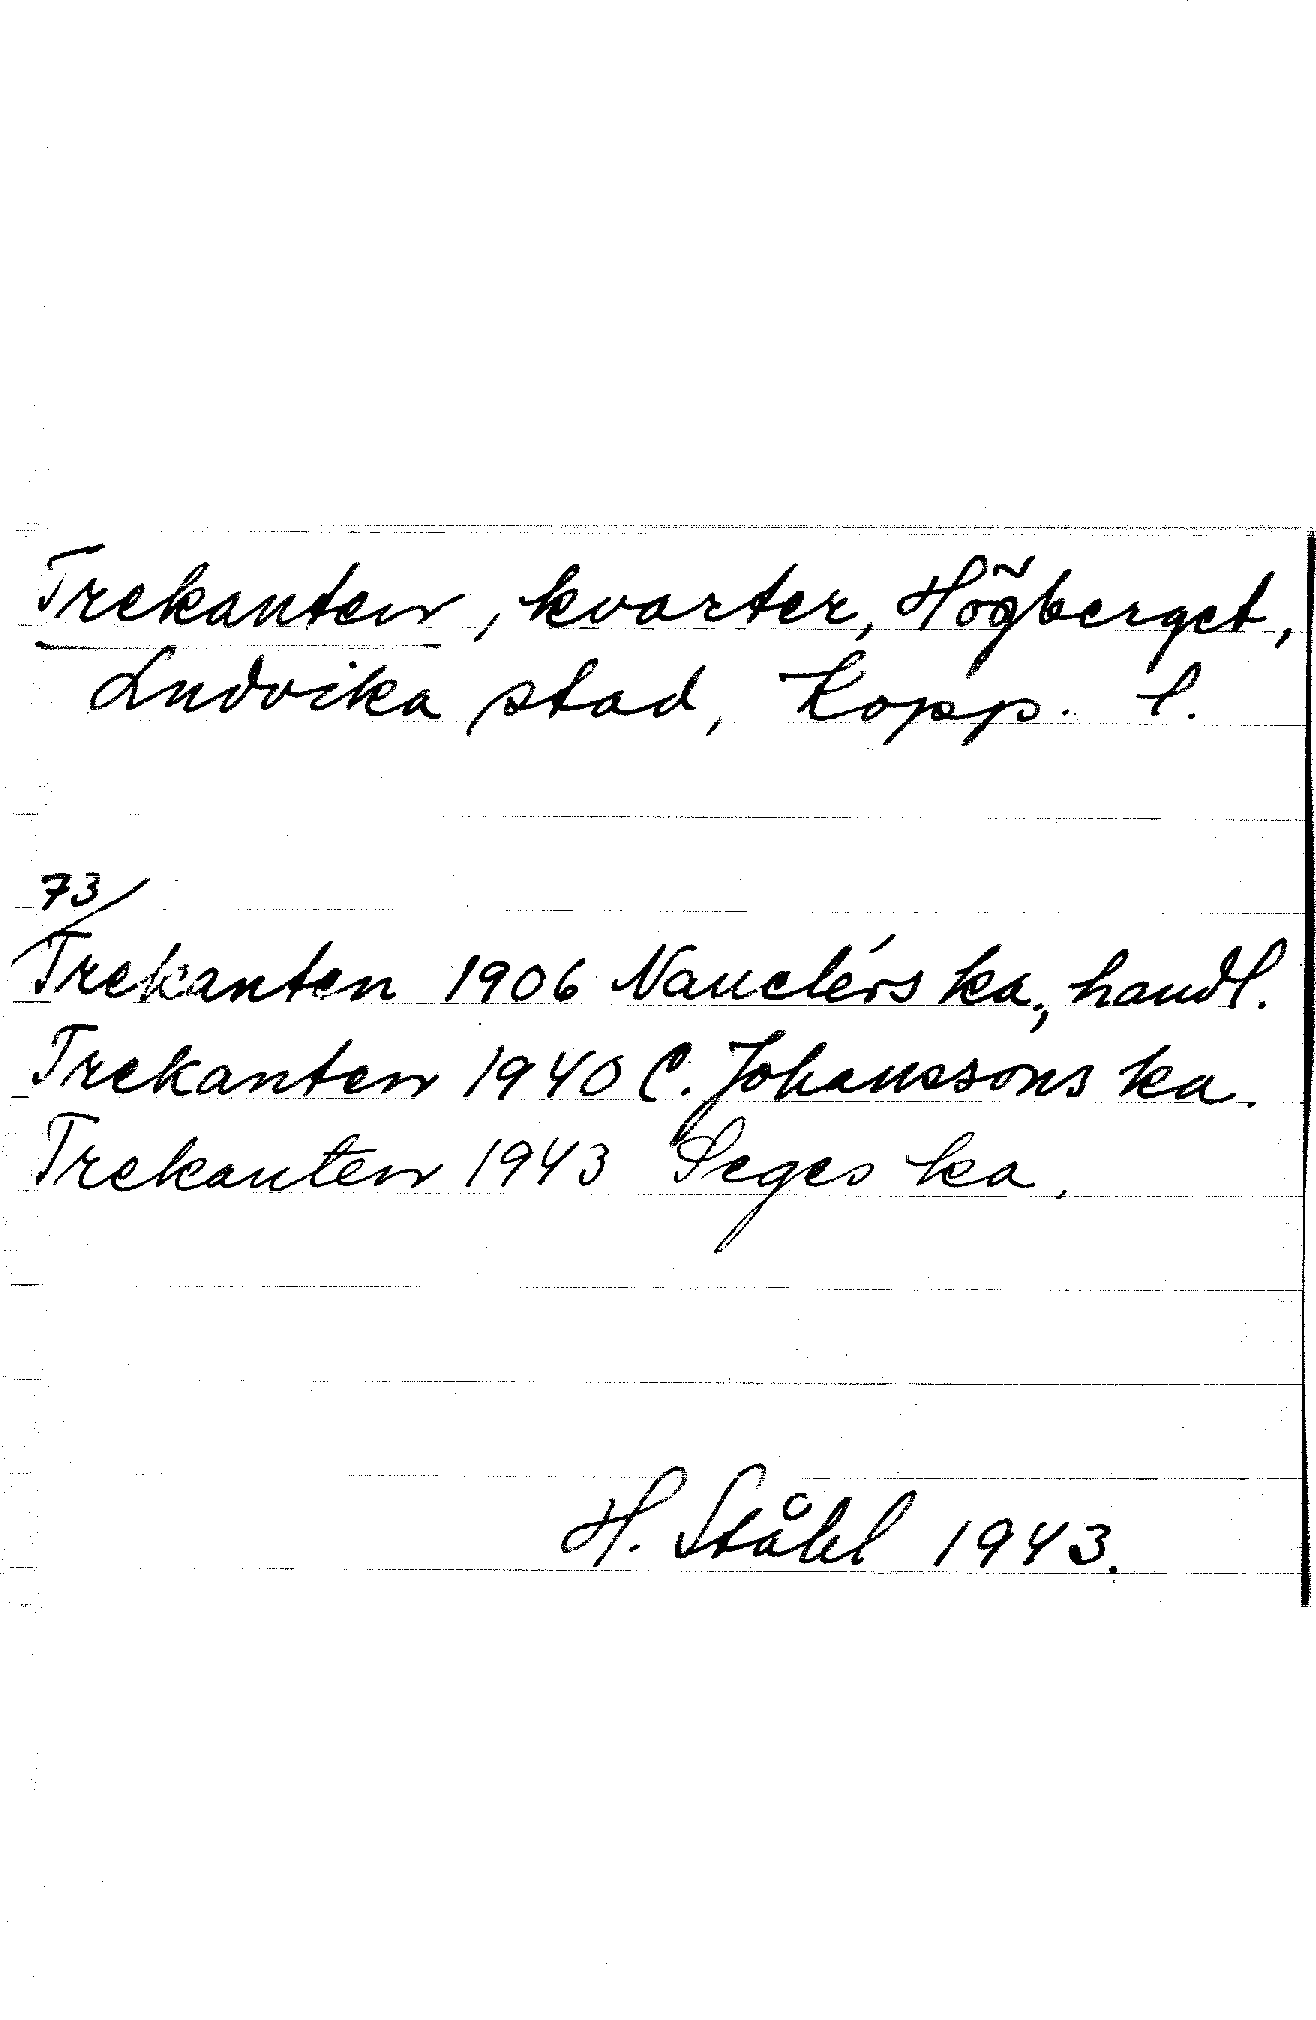 Trekanten, kvarter, Högberget,
Ludvika stad, Kopp. l.
73/
Trekanten 1906 Nauclérs ka., handl.
Trekanten 1940 C. Johanssons ka.
Trekanten 1943 Seges ka.
H. Ståhl 1943.